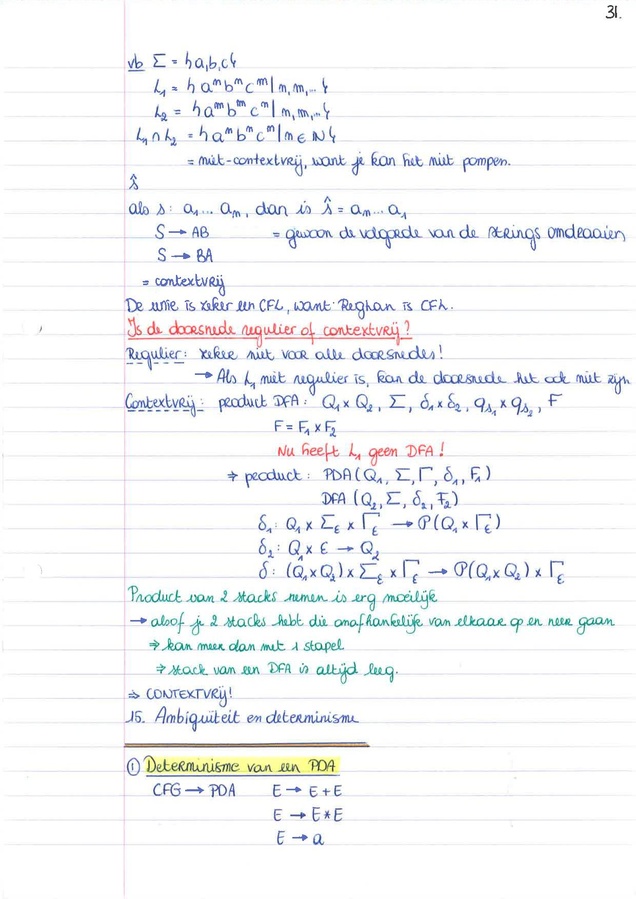 31.
vb Σ = {a,b,c}
L₁ = {aⁿbⁿcᵐ | n,m,...}
L₂ = {aⁿbᵐcᵐ | n,m,...}
L₁ ∩ L₂ = {aⁿbⁿcⁿ | n ∈ ℕ}
= niet-contextvrij, want je kan het niet pompen.
ŝ
als s: a₁... aₙ, dan is ŝ = aₙ... a₁
S → AB = gewoon de volgorde van de strings omdraaien
S → BA
= contextvrij
De unie is zeker een CFL, want Reglan is CFL.
Is de doorsnede regulier of contextvrij?
Regulier: zeker niet voor alle doorsnedes!
→ Als L₁ niet regulier is, kan de doorsnede het ook niet zijn
Contextvrij: product DFA: Q₁ x Q₂, Σ, δ₁ x δ₂, qs₁ x qs₂, F
F = F₁ x F₂
Nu heeft L₁ geen DFA!
⇒ product: PDA (Q₁, Σ, Γ, δ₁, F₁)
DFA (Q₂, Σ, δ₂, F₂)
δ₁: Q₁ x Σε x Γε → P(Q₁ x Γε)
δ₂: Q x ε → Q₂
δ: (Q₁ x Q₂) x Σε x Γε → P(Q₁ x Q₂) x Γε
Product van 2 stacks nemen is erg moeilijk
→ alsof je 2 stacks hebt die onafhankelijk van elkaar op en neer gaan
⇒ kan meer dan met 1 stapel
⇒ stack van een DFA is altijd leeg.
⇒ CONTEXTVRIJ!
15. Ambiguïteit en determinisme
① Determinisme van een PDA
CFG → PDA E → E + E
E → E * E
E → a